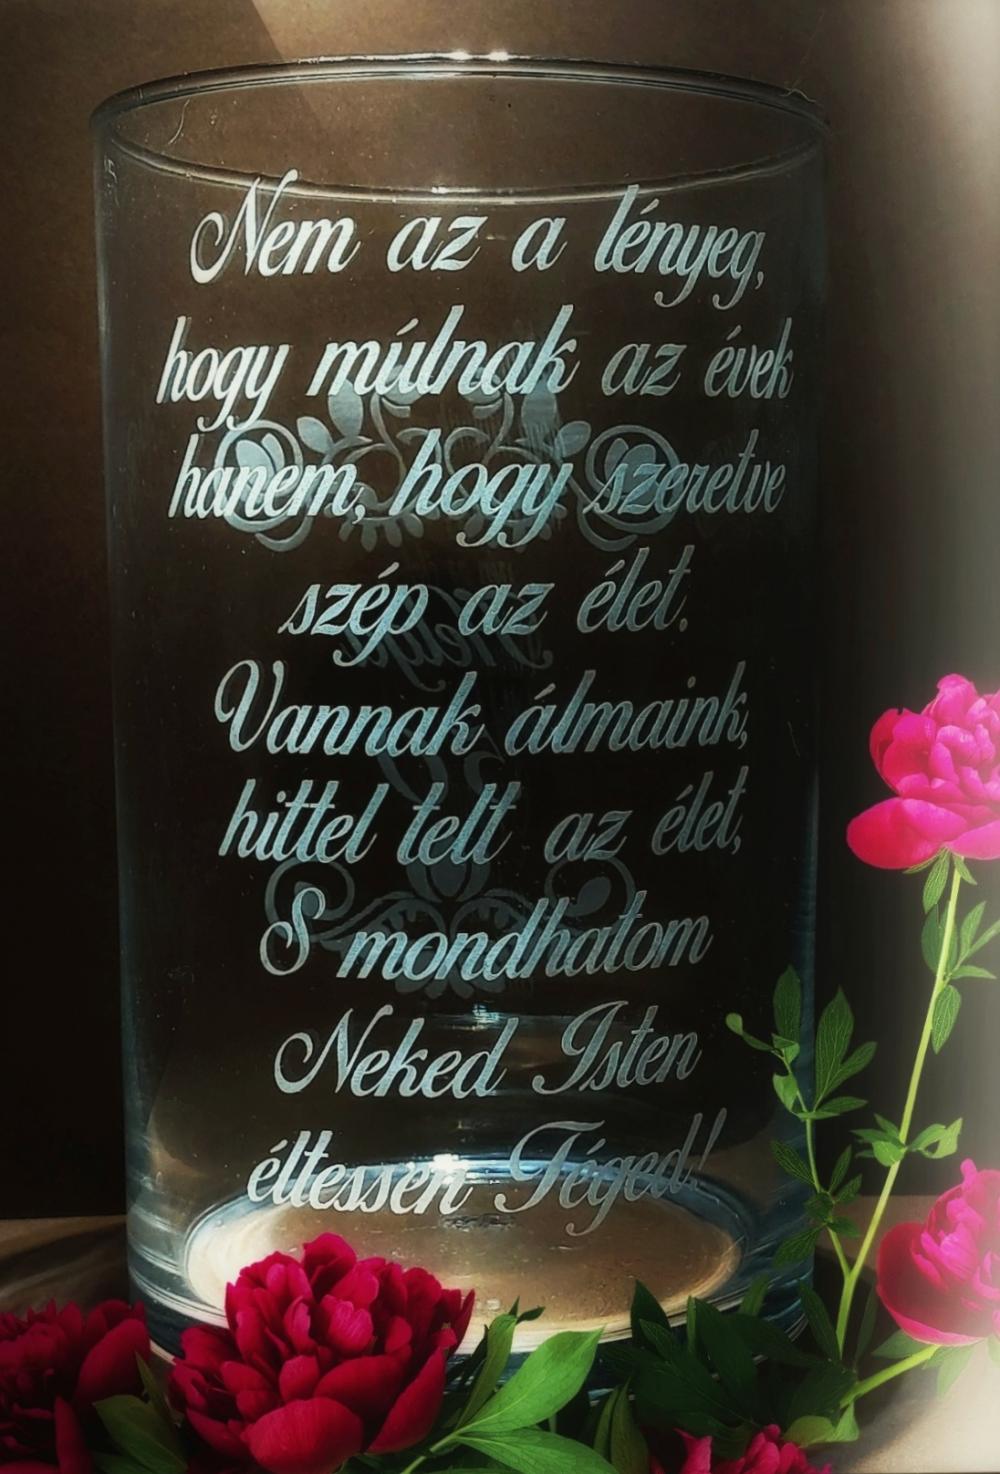 Nem az a lényeg,
hogy múlnak az évek
hanem, hogy szeretve
szép az élet.
Vannak álmaink,
hittel telt az élet,
S mondhatom
Neked Isten
éltessen Téged!